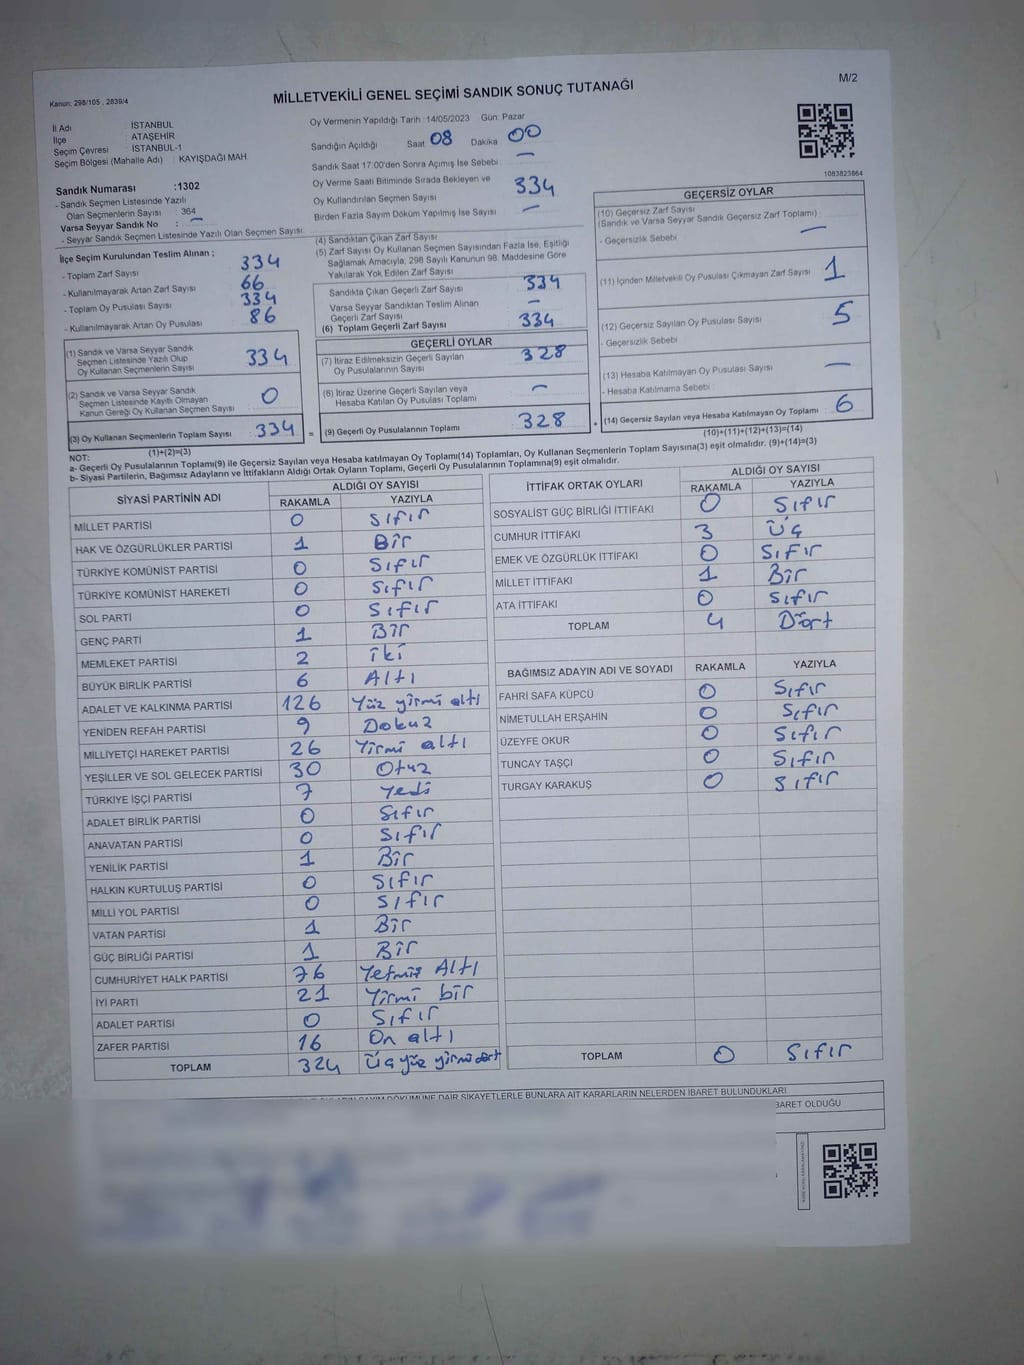 M/2
Kanun: 298/105 , 2839/4
MİLLETVEKİLİ GENEL SEÇİMİ SANDIK SONUÇ TUTANAĞI
İl Adı : İSTANBUL
İlçe : ATAŞEHİR
Seçim Çevresi : İSTANBUL-1
Seçim Bölgesi (Mahalle Adı) : KAYIŞDAĞI MAH.
Oy Vermenin Yapıldığı Tarih : 14/05/2023 Gün: Pazar
Sandığın Açıldığı Saat 08 Dakika 00
Sandık Saat 17:00'den Sonra Açılmış İse Sebebi : —
Oy Verme Saati Bitiminde Sırada Bekleyen ve
Oy Kullandırılan Seçmen Sayısı 334
Birden Fazla Sayım Döküm Yapılmış İse Sayısı —
1083823864
Sandık Numarası :1302
- Sandık Seçmen Listesinde Yazılı
Olan Seçmenlerin Sayısı : 364
Varsa Seyyar Sandık No : —
- Seyyar Sandık Seçmen Listesinde Yazılı Olan Seçmen Sayısı:
İlçe Seçim Kurulundan Teslim Alınan ;
- Toplam Zarf Sayısı 334
- Kullanılmayarak Artan Zarf Sayısı 66
- Toplam Oy Pusulası Sayısı 334
- Kullanılmayarak Artan Oy Pusulası 86
(1) Sandık ve Varsa Seyyar Sandık
Seçmen Listesinde Yazılı Olup
Oy Kullanan Seçmenlerin Sayısı 334
(2) Sandık ve Varsa Seyyar Sandık
Seçmen Listesinde Kayıtlı Olmayan
Kanun Gereği Oy Kullanan Seçmen Sayısı 0
(3) Oy Kullanan Seçmenlerin Toplam Sayısı 334
(1)+(2)=(3)
(4) Sandıktan Çıkan Zarf Sayısı
(5) Zarf Sayısı Oy Kullanan Seçmen Sayısından Fazla İse, Eşitliği
Sağlamak Amacıyla, 298 Sayılı Kanunun 98. Maddesine Göre
Yakılarak Yok Edilen Zarf Sayısı
Sandıkta Çıkan Geçerli Zarf Sayısı 334
Varsa Seyyar Sandıktan Teslim Alınan
Geçerli Zarf Sayısı —
(6) Toplam Geçerli Zarf Sayısı 334
GEÇERLİ OYLAR
(7) İtiraz Edilmeksizin Geçerli Sayılan
Oy Pusulalarının Sayısı 328
(8) İtiraz Üzerine Geçerli Sayılan veya
Hesaba Katılan Oy Pusulası Toplamı —
= (9) Geçerli Oy Pusulalarının Toplamı 328 +
GEÇERSİZ OYLAR
(10) Geçersiz Zarf Sayısı
(Sandık ve Varsa Seyyar Sandık Geçersiz Zarf Toplamı)
- Geçersizlik Sebebi : —
(11) İçinden Milletvekili Oy Pusulası Çıkmayan Zarf Sayısı 1
(12) Geçersiz Sayılan Oy Pusulası Sayısı 5
- Geçersizlik Sebebi :
(13) Hesaba Katılmayan Oy Pusulası Sayısı —
- Hesaba Katılmama Sebebi :
(14) Geçersiz Sayılan veya Hesaba Katılmayan Oy Toplamı 6
(10)+(11)+(12)+(13)=(14)
NOT:
a- Geçerli Oy Pusulalarının Toplamı(9) ile Geçersiz Sayılan veya Hesaba Katılmayan Oy Toplamı(14) Toplamları, Oy Kullanan Seçmenlerin Toplam Sayısına(3) eşit olmalıdır. (9)+(14)=(3)
b- Siyasi Partilerin, Bağımsız Adayların ve İttifakların Aldığı Ortak Oyların Toplamı, Geçerli Oy Pusulalarının Toplamına(9) eşit olmalıdır.
SİYASİ PARTİNİN ADI ALDIĞI OY SAYISI
RAKAMLA YAZIYLA
MİLLET PARTİSİ 0 Sıfır
HAK VE ÖZGÜRLÜKLER PARTİSİ 1 Bir
TÜRKİYE KOMÜNİST PARTİSİ 0 Sıfır
TÜRKİYE KOMÜNİST HAREKETİ 0 Sıfır
SOL PARTİ 0 Sıfır
GENÇ PARTİ 1 Bir
MEMLEKET PARTİSİ 2 iki
BÜYÜK BİRLİK PARTİSİ 6 Altı
ADALET VE KALKINMA PARTİSİ 126 Yüz yirmi altı
YENİDEN REFAH PARTİSİ 9 Dokuz
MİLLİYETÇİ HAREKET PARTİSİ 26 Yirmi altı
YEŞİLLER VE SOL GELECEK PARTİSİ 30 Otuz
TÜRKİYE İŞÇİ PARTİSİ 7 Yedi
ADALET BİRLİK PARTİSİ 0 Sıfır
ANAVATAN PARTİSİ 0 Sıfır
YENİLİK PARTİSİ 1 Bir
HALKIN KURTULUŞ PARTİSİ 0 Sıfır
MİLLİ YOL PARTİSİ 0 Sıfır
VATAN PARTİSİ 1 Bir
GÜÇ BİRLİĞİ PARTİSİ 1 Bir
CUMHURİYET HALK PARTİSİ 76 Yetmiş Altı
İYİ PARTİ 21 Yirmi bir
ADALET PARTİSİ 0 Sıfır
ZAFER PARTİSİ 16 On altı
TOPLAM 324 Üçyüz yirmi dört
İTTİFAK ORTAK OYLARI ALDIĞI OY SAYISI
RAKAMLA YAZIYLA
SOSYALİST GÜÇ BİRLİĞİ İTTİFAKI 0 Sıfır
CUMHUR İTTİFAKI 3 Üç
EMEK VE ÖZGÜRLÜK İTTİFAKI 0 Sıfır
MİLLET İTTİFAKI 1 Bir
ATA İTTİFAKI 0 Sıfır
TOPLAM 4 Dört
BAĞIMSIZ ADAYIN ADI VE SOYADI RAKAMLA YAZIYLA
FAHRİ SAFA KÜPCÜ 0 Sıfır
NİMETULLAH ERŞAHİN 0 Sıfır
ÜZEYFE OKUR 0 Sıfır
TUNCAY TAŞÇI 0 Sıfır
TURGAY KARAKUŞ 0 Sıfır
TOPLAM 0 Sıfır
DÖKÜMÜNE DAİR ŞİKAYETLERLE BUNLARA AİT KARARLARIN NELERDEN İBARET BULUNDUKLARI
BARET OLDUĞU